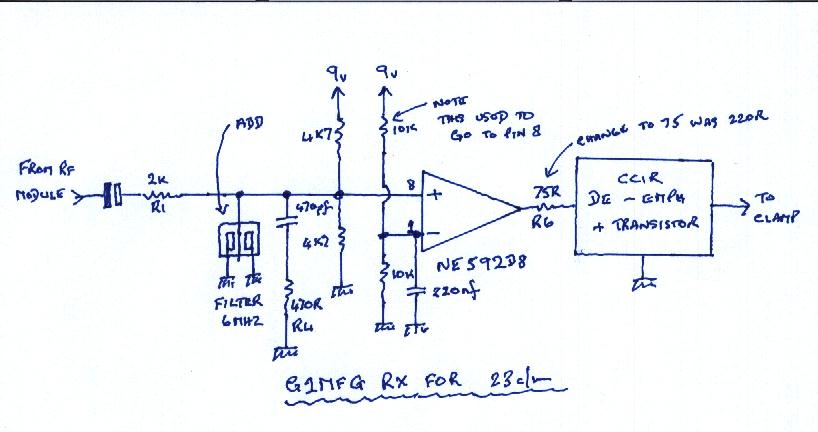 9v
9v
ADD
NOTE
THIS USED TO
GO TO PIN 8
CHANGE TO 75 WAS 220R
4K7
10K
FROM RF
MODULE
2K
R1
8
+
75R
R6
CCIR
DE - EMPH
+ TRANSISTOR
TO
CLAMP
470pf
4K7
1
-
NE592D8
FILTER
6MHZ
470R
R4
10K
220nf
G1MFG RX FOR 23c/m